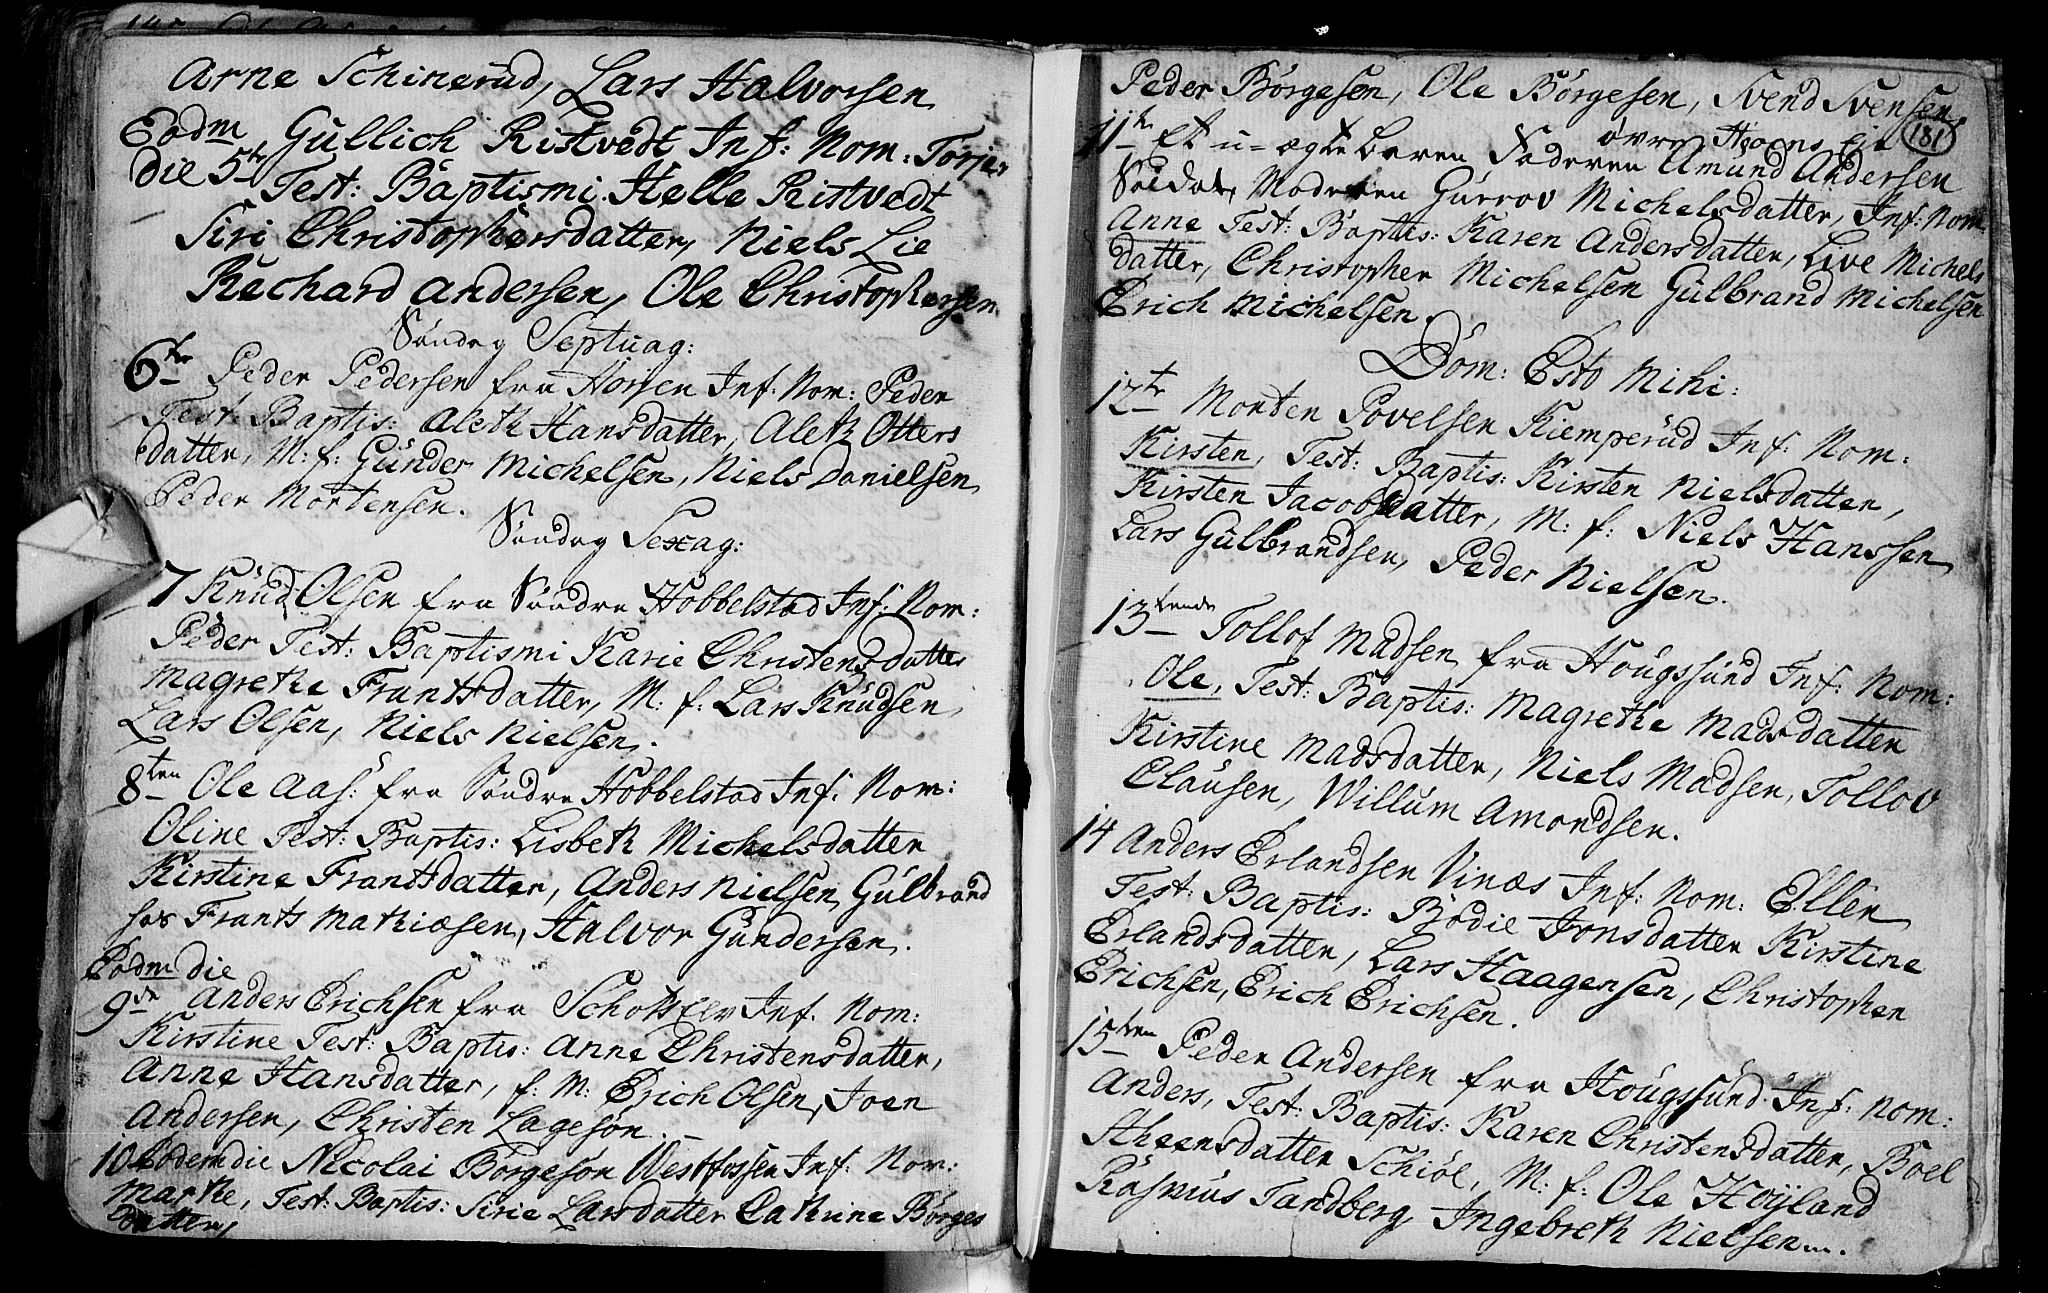 Arne Schinerud, Lars Halvorsen
Eodm Gullich Ristvedt Inf: Nom: Torje
die 5te Test: Baptismi Helle Ristvedt
Siri Christophersdatter, Niels Lie
Rechard Andersen, Ole Christophersen
Søndag Septuag:
6te Peder Pedersen fra Horsen Inf: Nom: Peder
Test: Baptis: Aleth Hansdatter, Aleth Otters
datter, M: f: Gunder Michelsen, Niels Danielsen
Peder Mortensen.
Søndag Sexag:
7 Knud Olsen fra Søndre Hobbelstad Inf: Nom:
Peder Test: Baptismi Karie Christensdatter
Magrethe Frantsdatter, M: f: Lars Knudsen
Lars Olsen, Niels Nielsen.
8ten Ole Aas: fra Søndre Hobbelstad Inf: Nom:
Oline Test: Baptis: Lisbeth Michelsdatter
Kirstine Frantsdatter, Anders Nielsen, Gulbrand
Frants Mathiæsen, Halvor Gundersen.
Eodm die
9de Anders Erichsen fra Inf. Nom:
Kirstine Test: Baptis: Anne Christensdatter,
Anne Hansdatter, f: M: Erich Olsen, Joen
Andersen, Christen Lagesøn.
10 Eodem die Nicolai Børgesøn Westfossen Inf: Nom:
Marthe, Test: Baptis: Sirie Larsdatter Cathrine Børges
datter,
Peder Børgesen, Ole Børgesen, Svend Svensen,
181
øvre Hoens Eje
11te Et u-ægte baren Faderen Amund Andersen
Soldat, Moderen Gurrov Michelsdatter, Inf: Nom
Anne Test: Baptis: Karen Andersdatter, Live Michels
datter, Christopher Michelsen Gulbrand Michelsen
Erich Michelsen.
Dom: Esto Mihi:
12te Morten Povelsen Kiemperud Inf: Nom:
Kirsten, Test: Baptis: Kirsten Nielsdatter,
Kirsten Jacobsdatter, M: f: Niels Hanssen
Lars Gulbrandsen, Peder Nielsen.
13tende Tollof Madsen fra Hougssund Inf: Nom:
Ole, Test: Baptis: Magrethe Madsdatter
Kirstine Madsdatter, Niels Madsen, Tollov
Clausen, Willum Amondsen.
14 Anders Erlandsen Vinæs Inf: Nom: Ellen
Test: Baptis: Bodie Jonsdatter Kirstine
Erlandsdatter, Lars Haagensen, Christopher
Erichsen, Erich Erichsen.
15ten Peder Andersen fra Hougssund Inf: Nom:
Anders, Test: Baptis: Karen Christensdatter, Boel
Steensdatter Schiøl, M: f: Ole Høyland
Rasmus Tandberg, Ingebreth Nielsen.